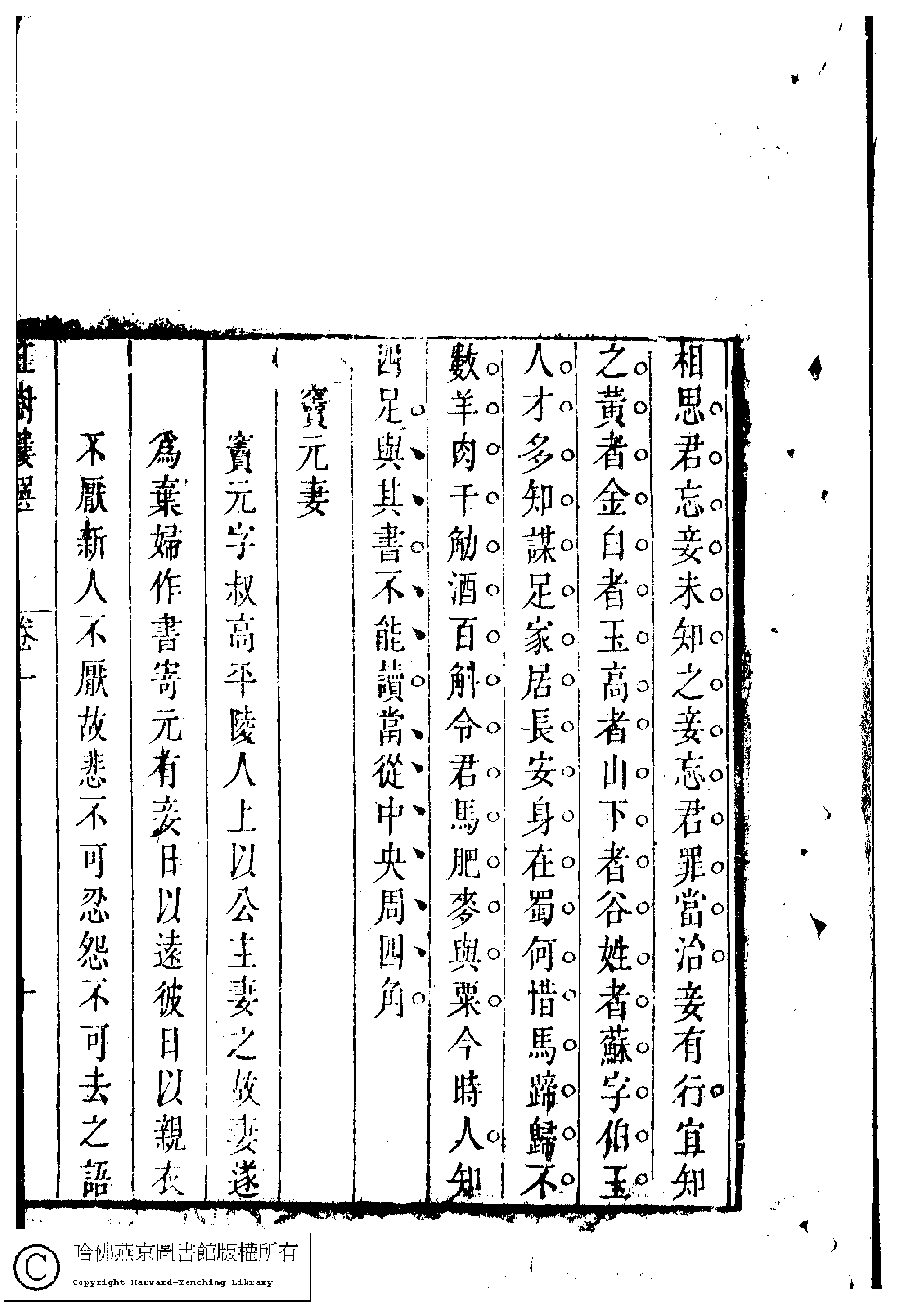 相思君忘妾未知之妾忘君罪當治妾有行宜知
之黃者金白者玉高者山下者谷姓者蘇字伯玉
人才多知謀足家居長安身在蜀何惜馬蹄歸不
數羊肉千觔酒百斛令君馬肥麥與粟今時人知
四足與其書不能讀當從中央周四角
竇元妻
竇元字叔高平陵人上以公主妻之故妻遂
爲棄婦作書寄元有妾日以遠彼日以親衣
不厭新人不厭故悲不可忍怨不可去之語
卷一
十
哈佛燕京圖書館版權所有
Copyright Harvard-Yenching Library